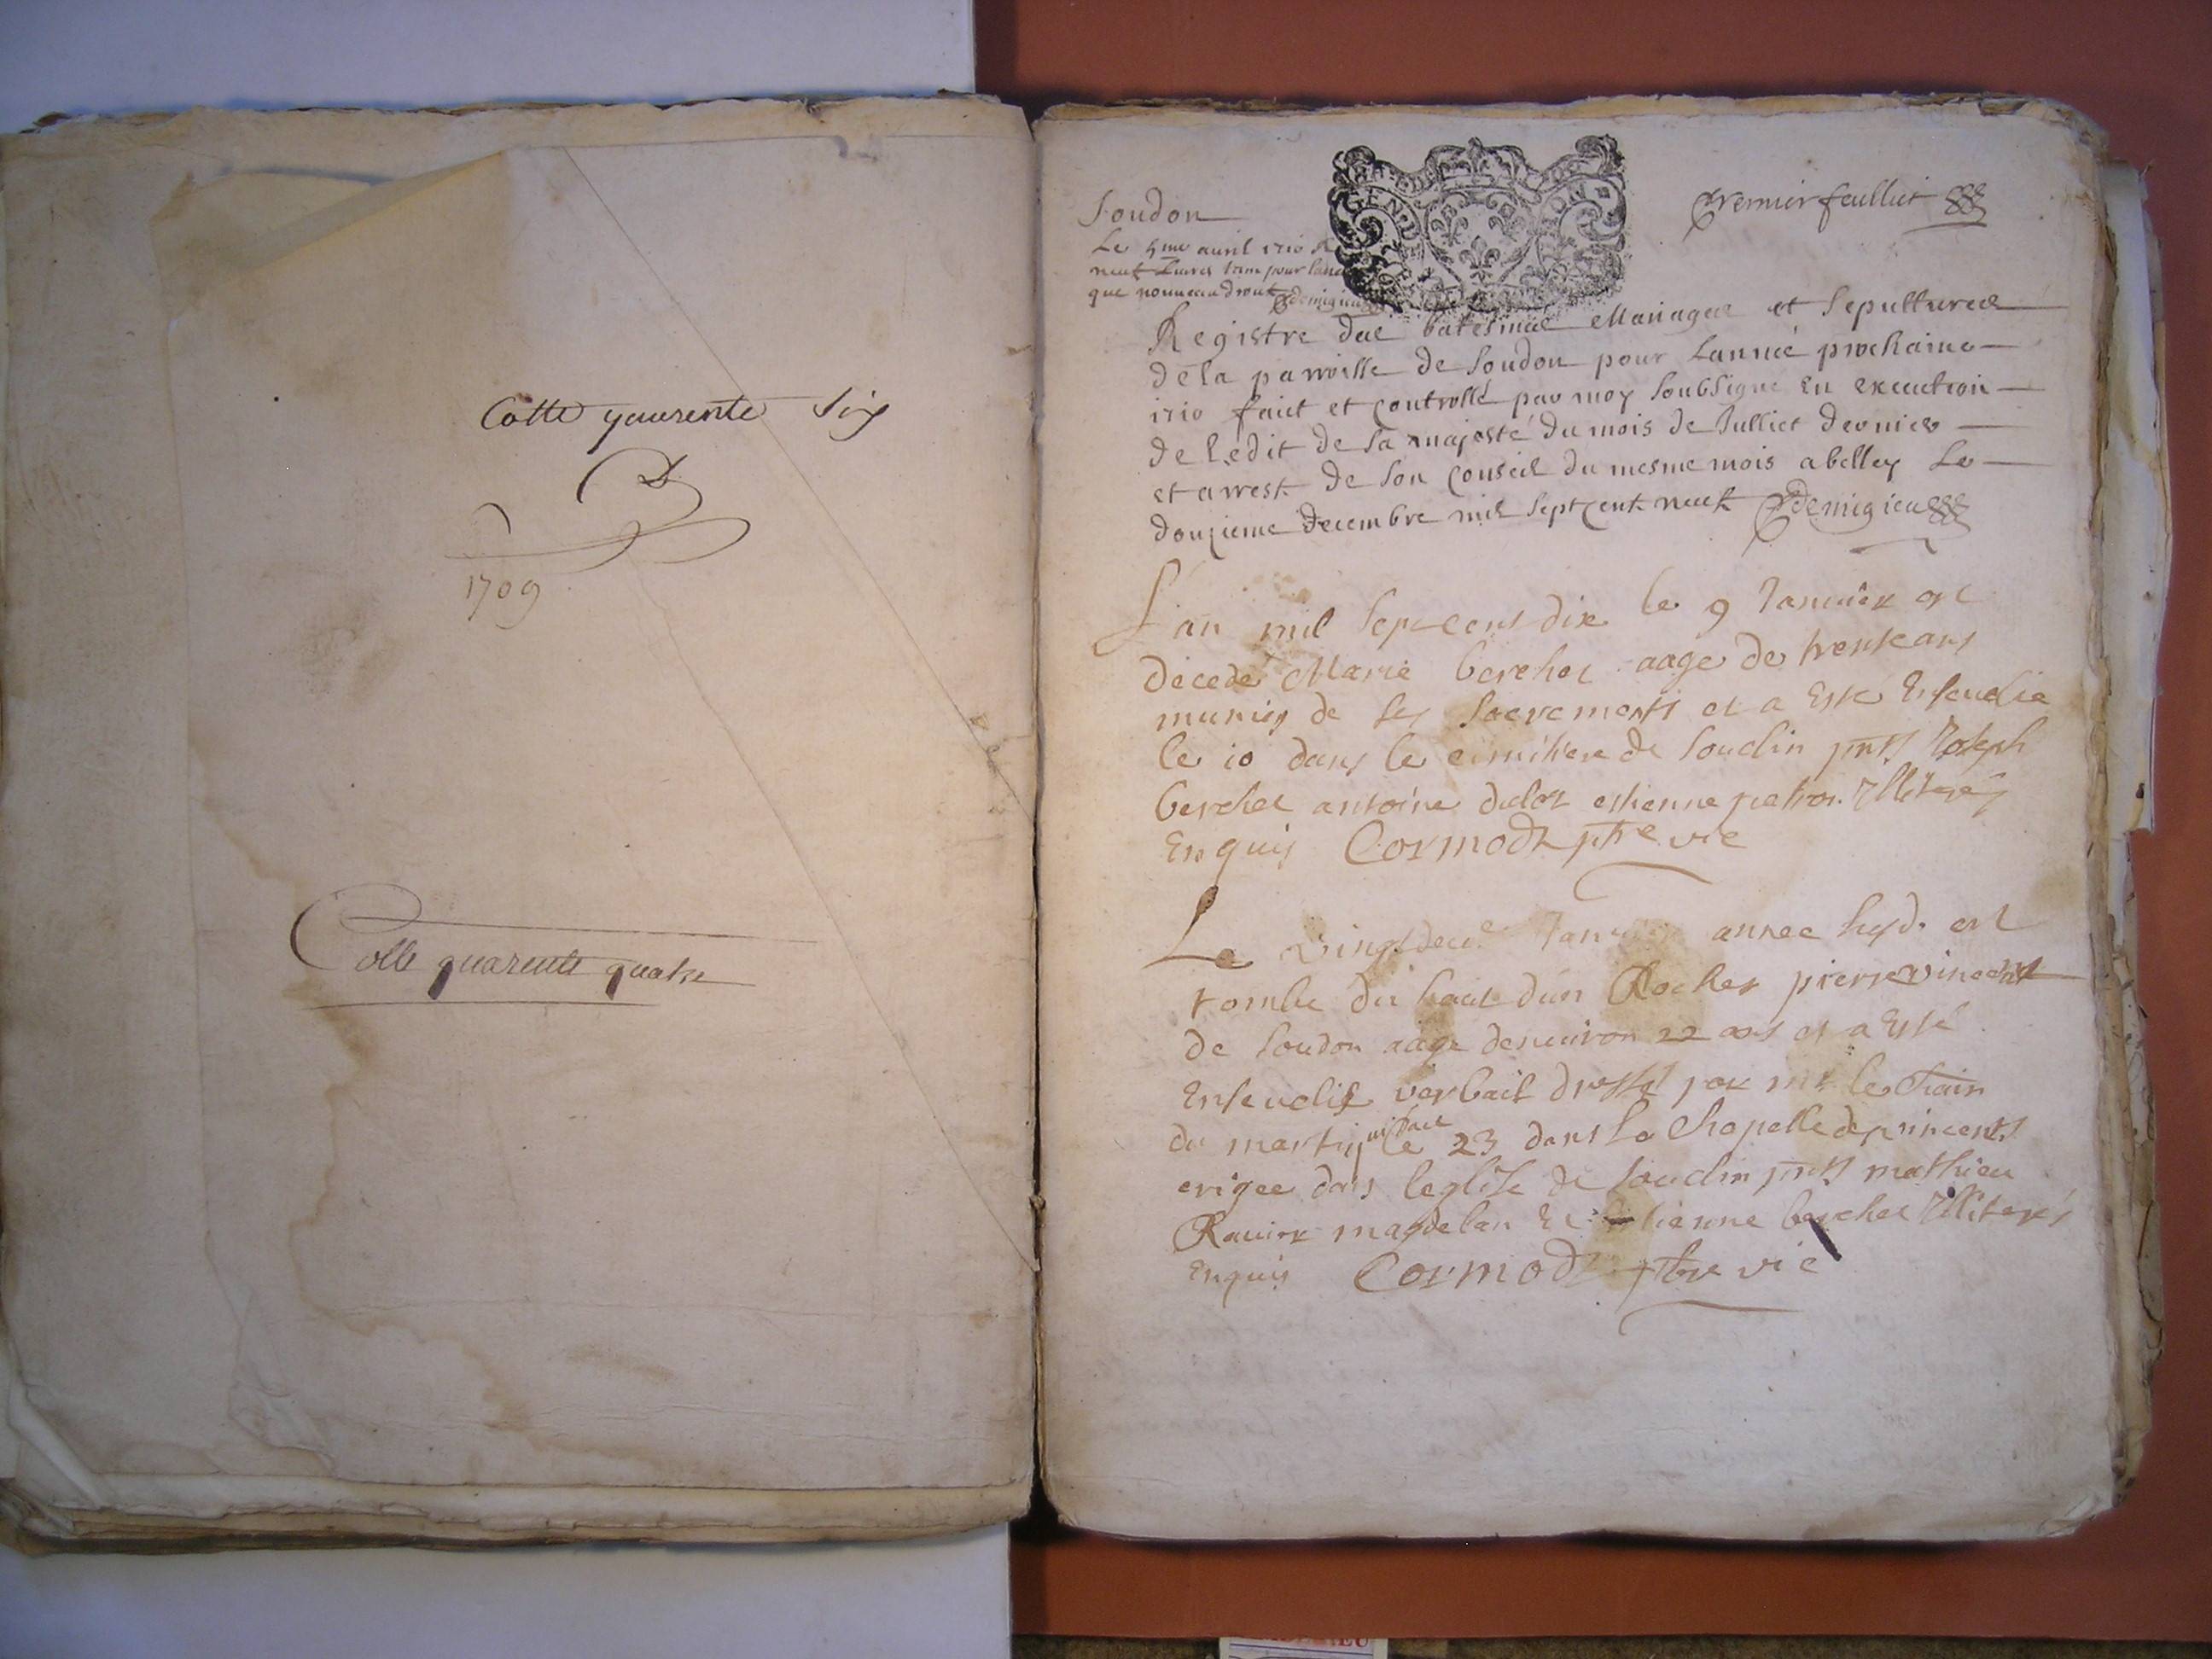 Cotte quarente Six
1709
Cotte quarente quatre
Soudon
Premier feulliet
Le 4me avril 1710
neuf Livres pour
que nouveau droit Demigieu
GEN
Registre des batesmes Mariages et Sepultures
de la parroisse de Soudon pour Lannée prochaine
1710 faict et Controllé par moy Soubsigné En execution
de Ledit de Sa majesté du mois de Julliet dernier
et arrest de Son Conseil du mesme mois a belley Le
douzieme decembre mil Sept Cent neuf Demigieu
L'an mil Sept cens dix le 9 Janvier est
décedé Marie berchet aage de trente ans
munis de ses Sacrements et a Esté Ensevelie
le 10 dans le cimitiere de Soudin pnts Joseph
berchet antoine dulot estienne petion Illiterés
Enquis Cormod ptre vic
Le vingtdeux Janvier annee susd. est
tombé du haut dun Rocher pierre vincent
de Soudon aagé denuiron 22 ans et a Esté
Enseuelis verbail dressé par mr le Train
du martin le 23 dans la Chapelle de vincents
erigee dans leglise de Soudin pnts mathieu
Rauier magdelan Et estienne berchet Illiterés
Enquis Cormod ptre vic